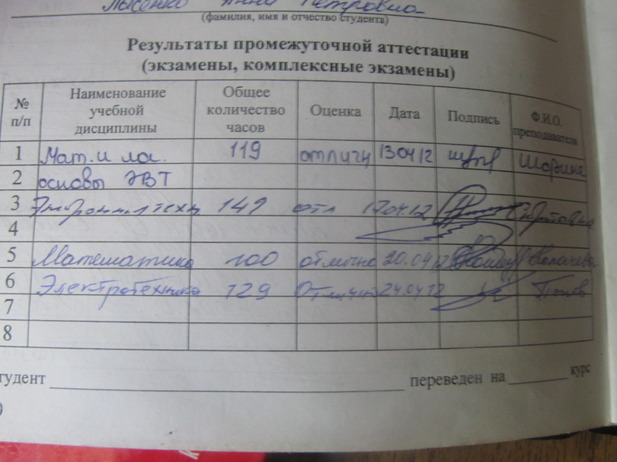 Анна Петровна
(фамилия, имя и отчество студента)
Результаты промежуточной аттестации
(экзамены, комплексные экзамены)
№ п/п Наименование учебной дисциплины Общее количество часов Оценка Дата Подпись Ф.И.О. преподавателя
1 Мат. и ло. 119 отличн 130412
2 основы ЭВТ
3 149 отл 170412
4
5 Математика 100 отлично 20.0412
6 Электротехника 129 Отличн 24.0412
7
8
тудент переведен на курс